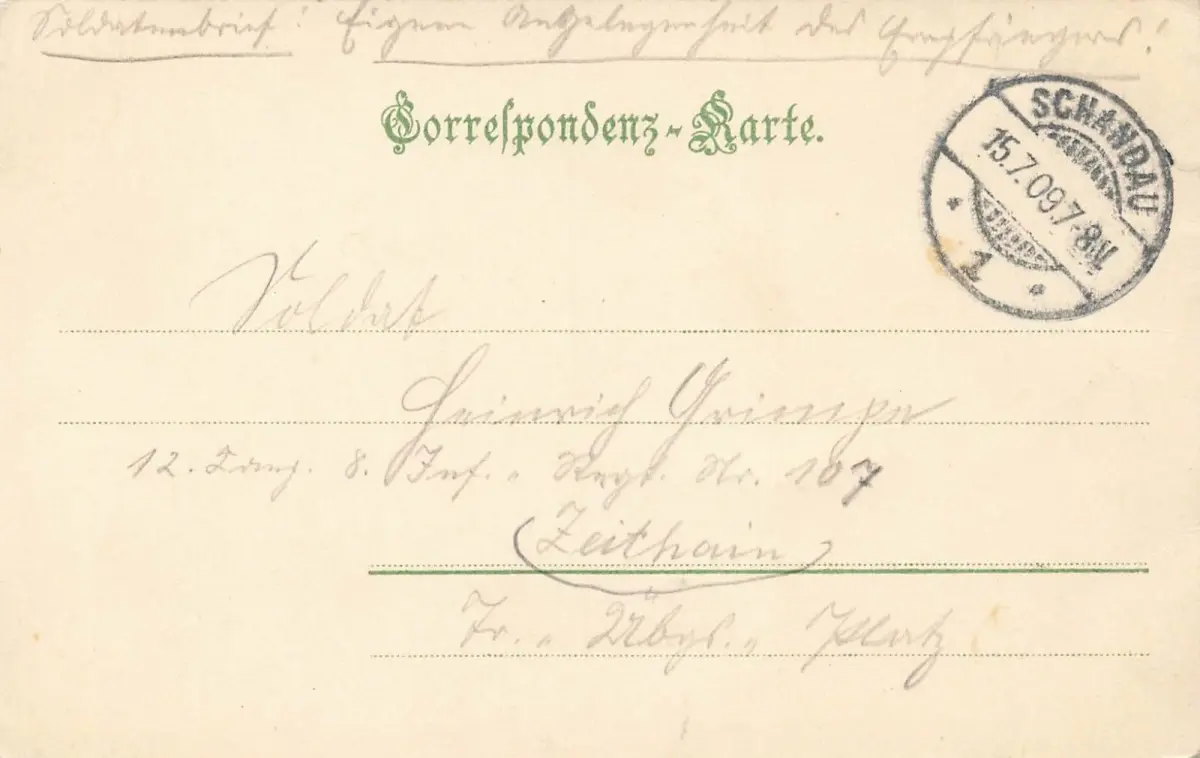 Soldatenbrief! Eigene Angelegenheit des Empfängers!
Correspondenz-Karte.
SCHANDAU
15.7.09.7-8N.
1
Soldat
Heinrich Grimpe
12. Komp. 8. Inf.-Regt. Nr. 107
Zeithain
Tr.-Übgs.-Platz